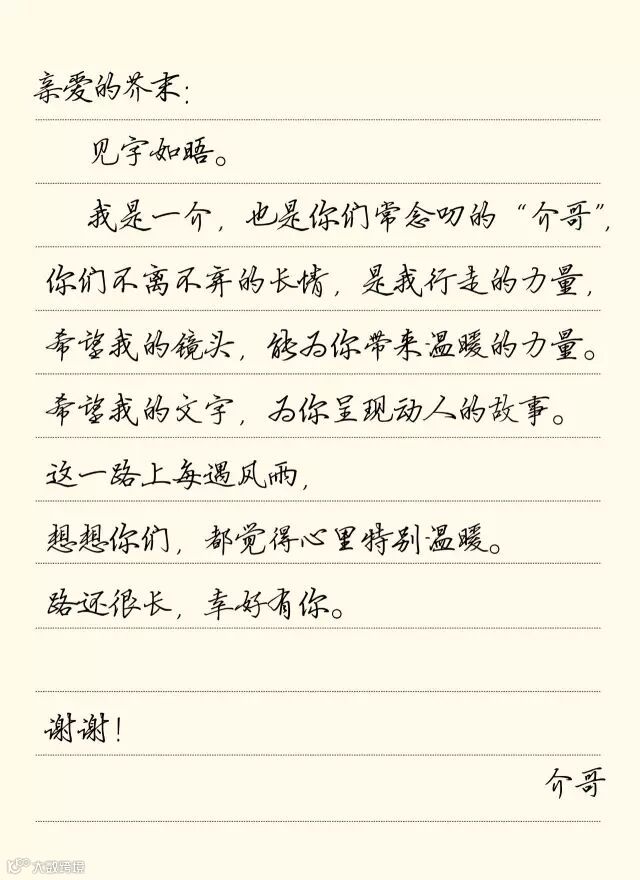 亲爱的芥末：
见字如晤。
我是一介，也是你们常念叨的“介哥”，
你们不离不弃的长情，是我行走的力量，
希望我的镜头，能为你带来温暖的力量。
希望我的文字，为你呈现动人的故事。
这一路上每遇风雨，
想想你们，都觉得心里特别温暖。
路还很长，幸好有你。
谢谢！
介哥
大数跨境